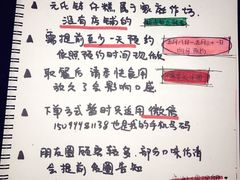 元氏钵仔糕属于家庭作坊
没有店铺的
需提前至少一天预约
依照预约时间现做
取餐后请尽快食用
放久了会影响口感
下单方式暂时只适用微信
15099481138也是我的手机号码
朋友圈顾客较多，部分口味估清
会提前在圈告知